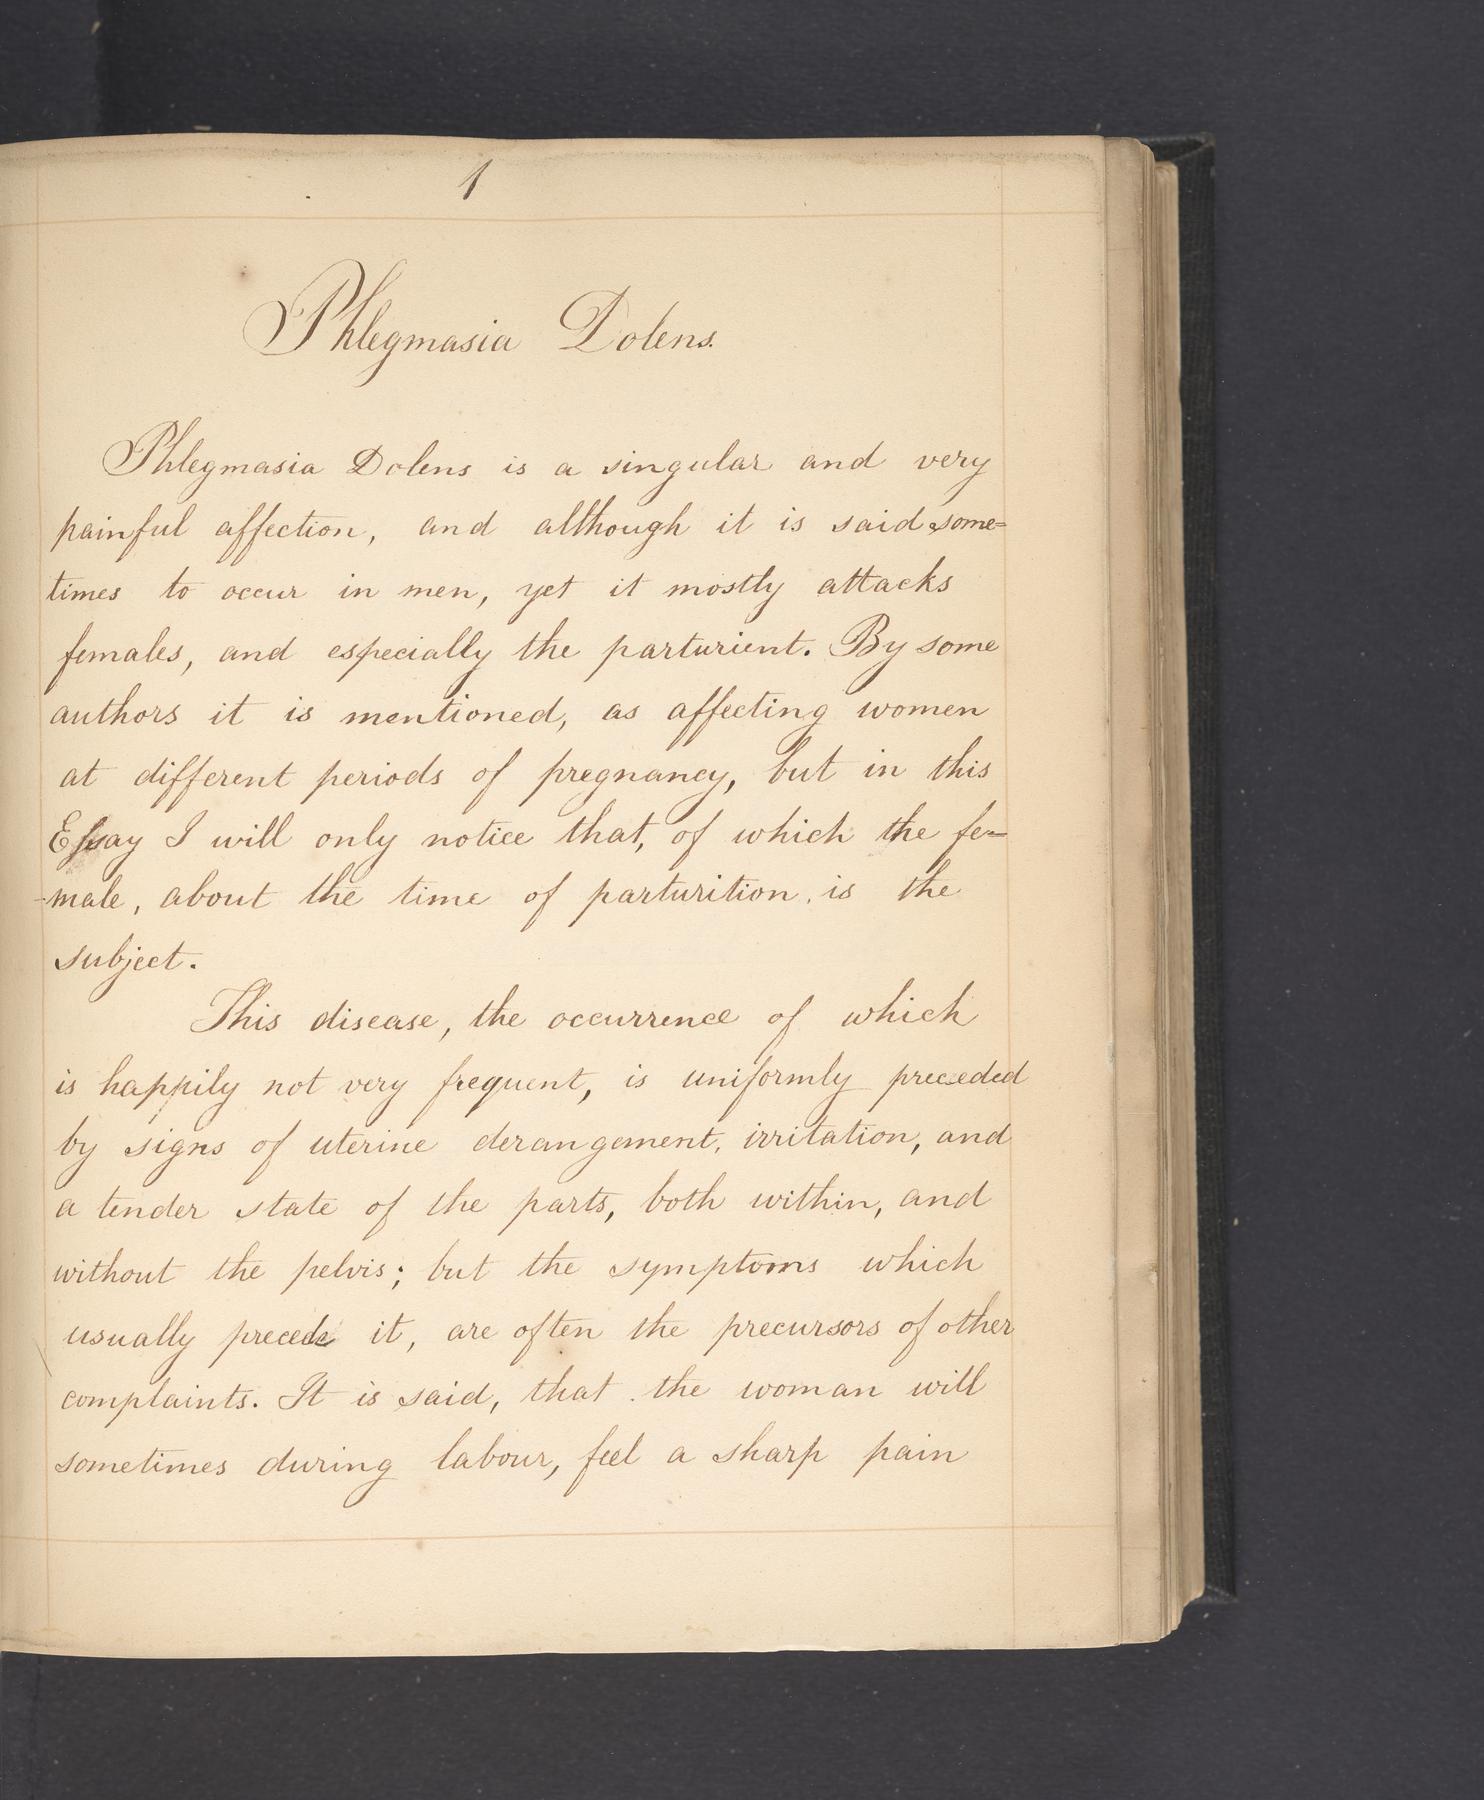 1
Phlegmasia Dolens.
Phlegmasia Dolens is a singular and very
painful affection, and although it is said some=
times to occur in men, yet it mostly attacks
females, and especially the parturient. By some
authors it is mentioned, as affecting women
at different periods of pregnancy, but in this
Eſsay I will only notice that, of which the fe=
-male, about the time of parturition, is the
subject.
This disease, the occurrence of which
is happily not very frequent, is uniformly preceded
by signs of uterine derangement, irritation, and
a tender state of the parts, both within, and
without the pelvis; but the symptoms which
usually precede it, are often the precursors of other
complaints. It is said, that the woman will
sometimes during labour, feel a sharp pain